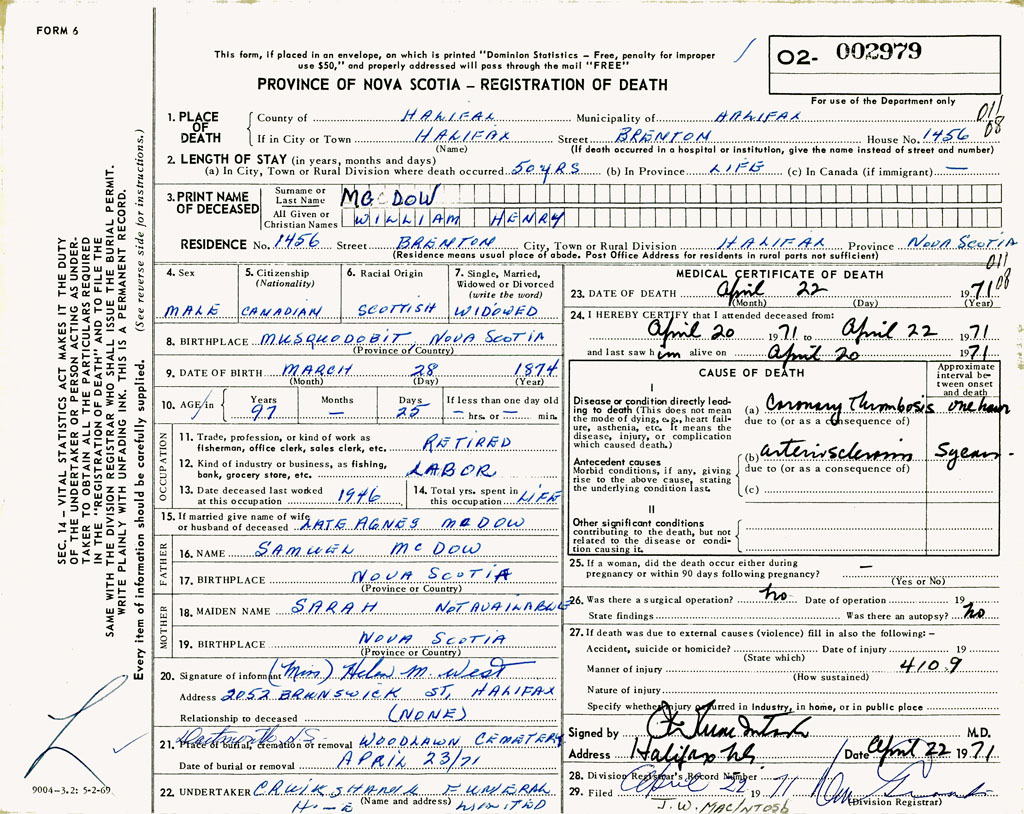 FORM 6
This form, if placed in an envelope, on which is printed "Dominion Statistics – Free, penalty for improper
use $50," and properly addressed will pass through the mail "FREE"
PROVINCE OF NOVA SCOTIA – REGISTRATION OF DEATH
02- 002979
For use of the Department only
011
08
1. PLACE OF DEATH County of HALIFAX Municipality of HALIFAX
If in City or Town HALIFAX Street BRENTON House No. 1456
(Name) (If death occurred in a hospital or institution, give the name instead of street and number)
2. LENGTH OF STAY (in years, months and days)
(a) In City, Town or Rural Division where death occurred 50 YRS (b) In Province LIFE (c) In Canada (if immigrant) —
3. PRINT NAME OF DECEASED Surname or Last Name MC DOW
All Given or Christian Names WILLIAM HENRY
RESIDENCE No. 1456 Street BRENTON City, Town or Rural Division HALIFAX Province NOVA SCOTIA
(Residence means usual place of abode. Post Office Address for residents in rural parts not sufficient)
011
08
4. Sex MALE
5. Citizenship (Nationality) CANADIAN
6. Racial Origin SCOTTISH
7. Single, Married, Widowed or Divorced (write the word) WIDOWED
8. BIRTHPLACE MUSQUODOBIT, NOVA SCOTIA
(Province or Country)
9. DATE OF BIRTH MARCH 28 1874
(Month) (Day) (Year)
10. AGE in Years 97 Months — Days 25 If less than one day old
hrs. or — min.
OCCUPATION
11. Trade, profession, or kind of work as fisherman, office clerk, sales clerk, etc. RETIRED
12. Kind of industry or business, as fishing, bank, grocery store, etc. LABOR
13. Date deceased last worked at this occupation 1946
14. Total yrs. spent in this occupation LIFE
15. If married give name of wife or husband of deceased LATE AGNES MCDOW
FATHER
16. NAME SAMUEL MCDOW
17. BIRTHPLACE NOVA SCOTIA
(Province or Country)
MOTHER
18. MAIDEN NAME SARAH NOT AVAILABLE
19. BIRTHPLACE NOVA SCOTIA
(Province or Country)
20. Signature of informant (Miss) Helen M. West
Address 2052 BRUNSWICK ST, HALIFAX
Relationship to deceased (NONE)
Dartmouth N.S.
21. Place of burial, cremation or removal WOODLAWN CEMETERY
Date of burial or removal APRIL 23/71
22. UNDERTAKER CRUIKSHANK FUNERAL
(Name and address) LIMITED
MEDICAL CERTIFICATE OF DEATH
23. DATE OF DEATH April 22 1971
(Month) (Day) (Year)
24. I HEREBY CERTIFY that I attended deceased from:
April 20 1971 to April 22 1971
and last saw him alive on April 20 1971
CAUSE OF DEATH
Approximate interval between onset and death
I
Disease or condition directly leading to death (This does not mean the mode of dying, e.g., heart failure, asthenia, etc. It means the disease, injury, or complication which caused death.)
(a) Coronary Thrombosis one hour
due to (or as a consequence of)
Antecedent causes
Morbid conditions, if any, giving rise to the above cause, stating the underlying condition last.
(b) arteriosclerosis 5 years
due to (or as a consequence of)
(c)
II
Other significant conditions contributing to the death, but not related to the disease or condition causing it.
25. If a woman, did the death occur either during pregnancy or within 90 days following pregnancy? —
(Yes or No)
26. Was there a surgical operation? no Date of operation 19
State findings Was there an autopsy? no
27. If death was due to external causes (violence) fill in also the following: –
Accident, suicide or homicide? Date of injury 19
(State which)
Manner of injury 410.9
(How sustained)
Nature of injury
Specify whether injury occurred in industry, in home, or in public place
Signed by M.D.
Address Halifax N.S. Date April 22 1971
28. Division Registrar's Record Number
29. Filed April 22 1971
(Division Registrar)
J. W. MACINTOSH
SEC. 14 – VITAL STATISTICS ACT MAKES IT THE DUTY
OF THE UNDERTAKER OR PERSON ACTING AS UNDERTAKER
TO OBTAIN ALL THE PARTICULARS REQUIRED
IN THE "REGISTRATION OF DEATH" AND TO FILE THE
SAME WITH THE DIVISION REGISTRAR WHO SHALL ISSUE THE BURIAL PERMIT.
WRITE PLAINLY WITH UNFADING INK. THIS IS A PERMANENT RECORD.
Every item of information should be carefully supplied. (See reverse side for instructions.)
9004-3.2: 5-2-69